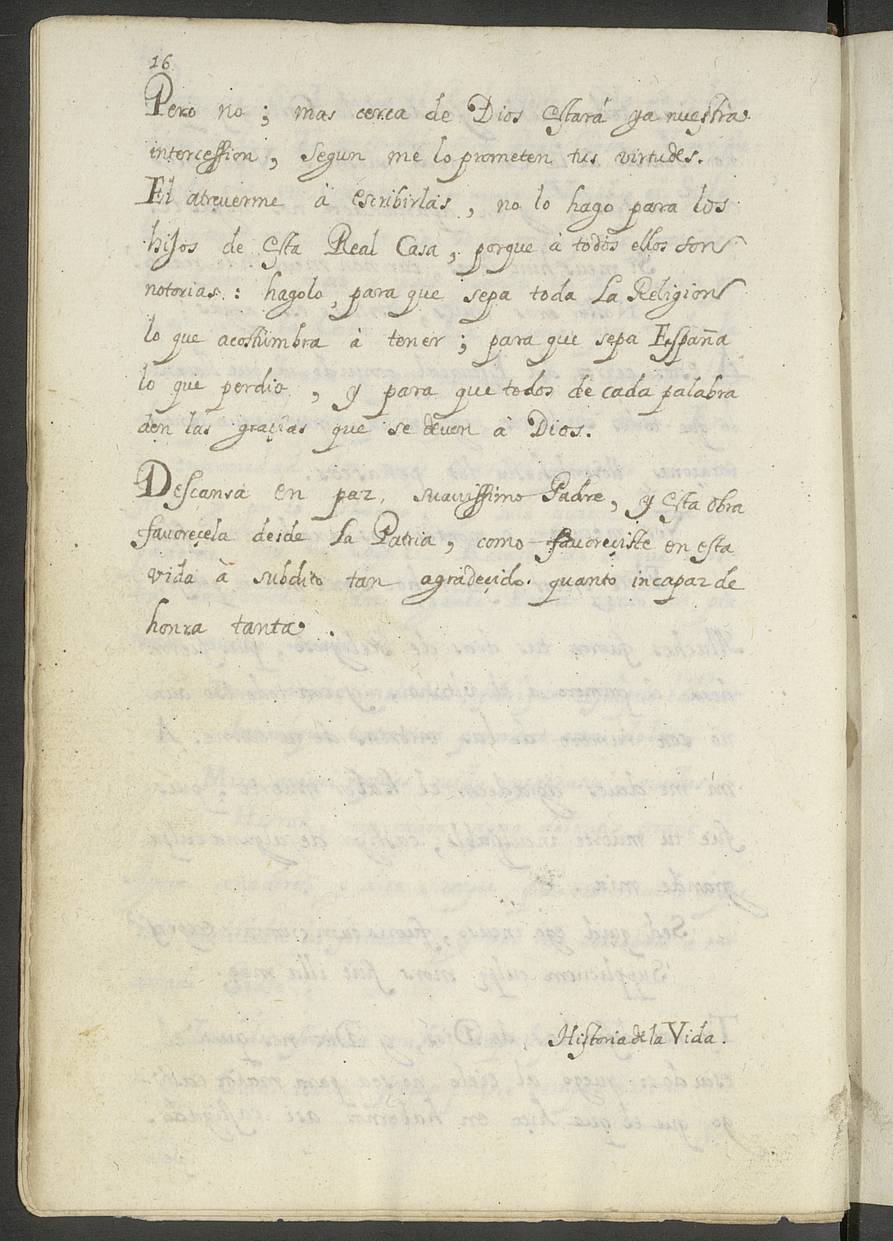 16
Pero no ; mas cerca de Dios estará ya nuestra
intercession , segun me lo prometen tus virtudes.
El atreuerme à escribirlas , no lo hago para los
hijos de esta Real Casa , porque à todos ellos son
notorias : hagolo , para que sepa toda la Religion
lo que acostumbra à tener ; para que sepa España
lo que perdio , y para que todos de cada palabra
den las graçias que se deven à Dios.
Descansa en paz , suauissimo Padre , y esta obra
fauoreçela desde la Patria , como fauoreçiste en esta
vida à subdito tan agradeçido quanto incapaz de
honra tanta .
Historia de la Vida .